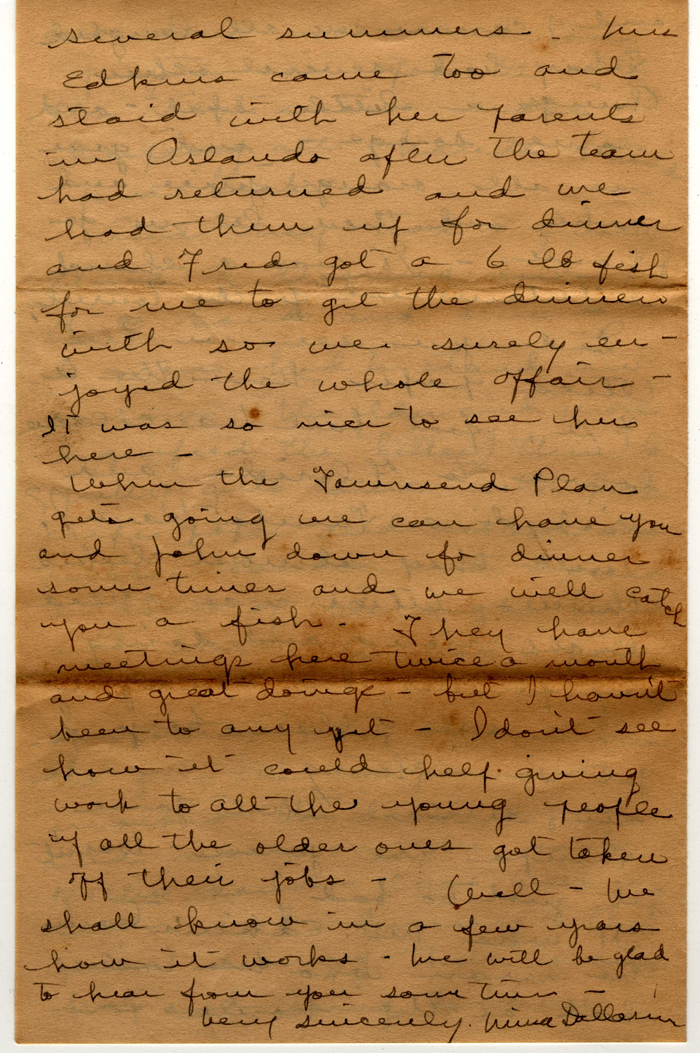 several summers - Mrs
Edkins came too and
staid with her parents
in Orlando after the team
had returned and we
had them up for dinner
and Fred got a 6 lb fish
for me to get the dinner
with so we surely en-
joyed the whole affair -
It was so nice to see her
here -
When the Townsend Plan
gets going we can have you
and John down fo dinner
some times and we will catch
you a fish. They have
meetings here twice a month
and great doings - but I haven't
been to any yet - I don't see
how it could help giving
work to all the young people
if all the older ones got taken
off their jobs - Well - We
shall know in a few years
how it works - We will be glad
to hear from you some time -
Very sincerely.